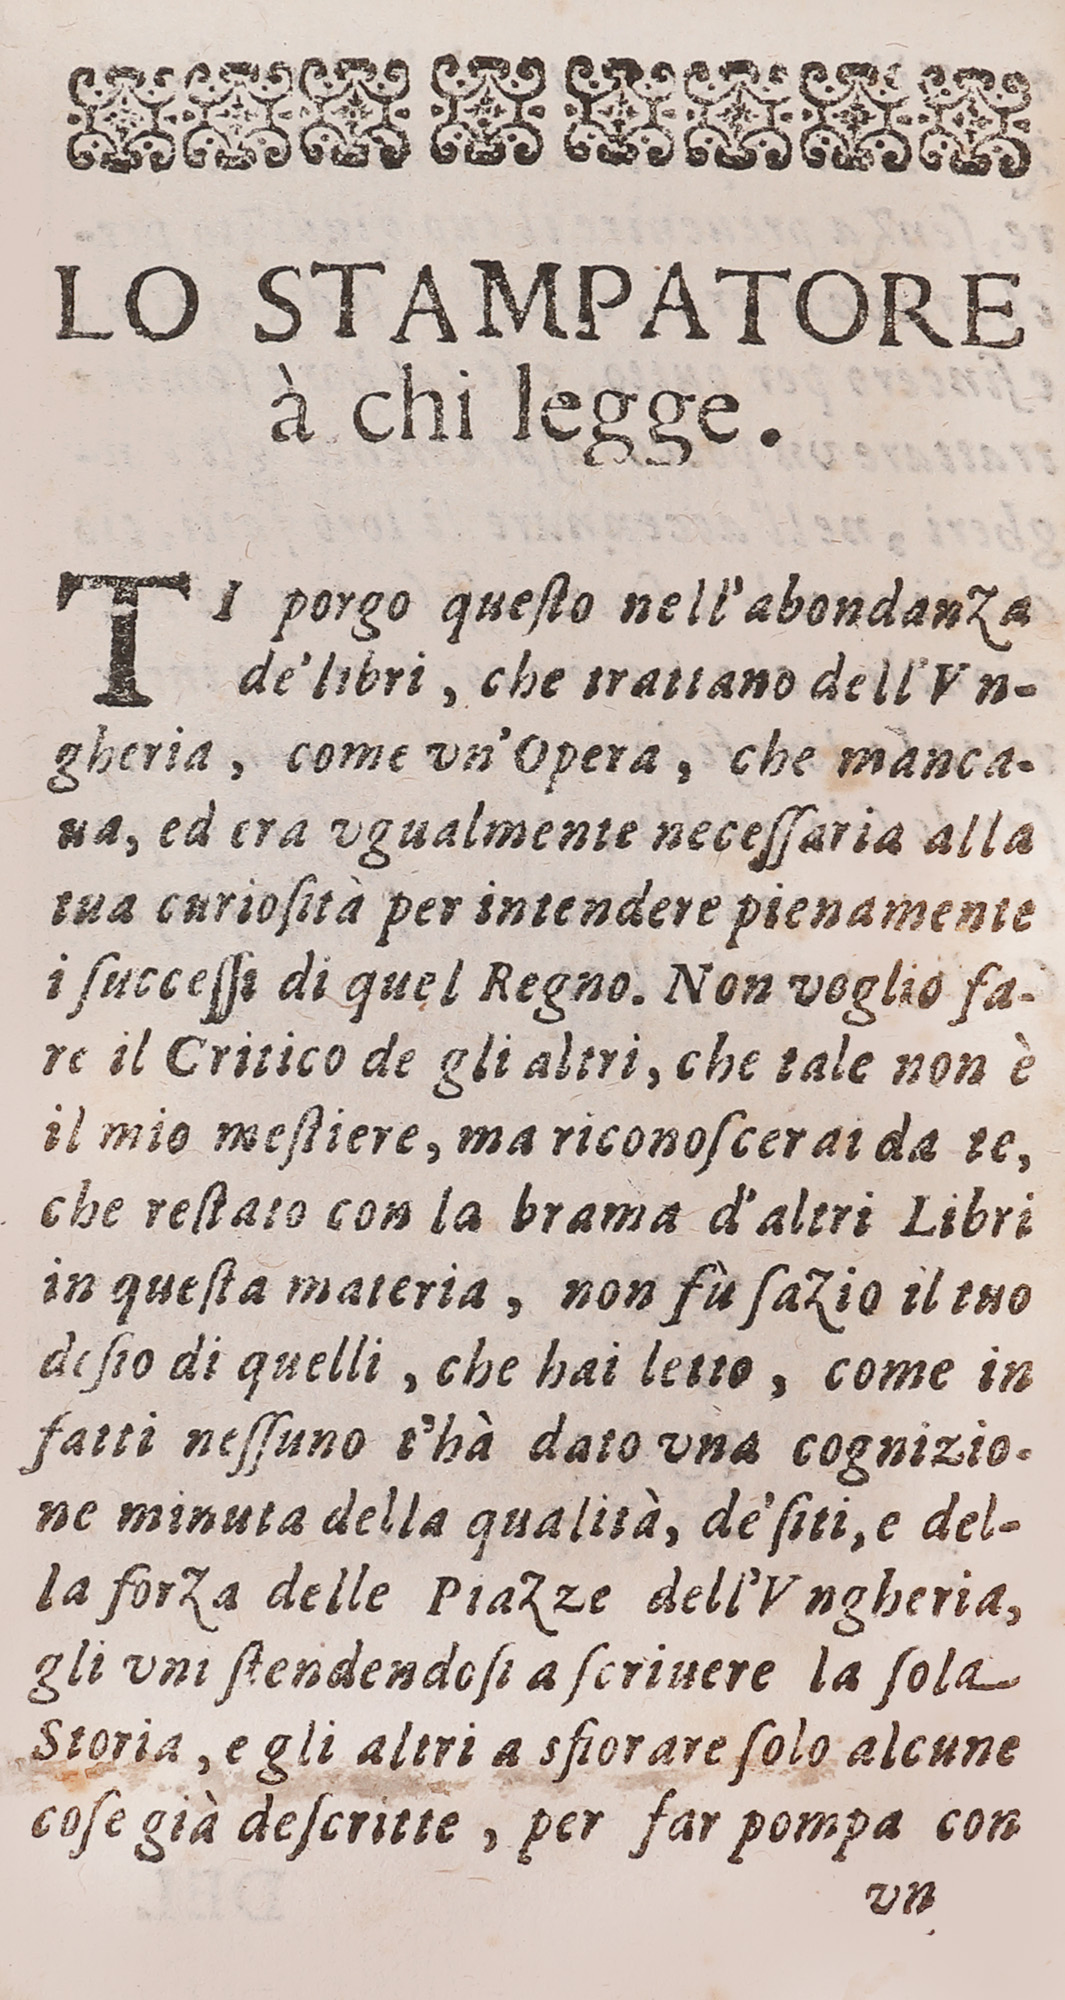 LO STAMPATORE
à chi legge.
TI porgo queſto nell'abondanza
de' libri, che trattano dell'Vn-
gheria, come vn'Opera, che manca-
ua, ed era vgualmente neceſſaria alla
tua curioſità per intendere pienamente
i ſucceſſi di quel Regno. Non voglio fa-
re il Critico de gli altri, che tale non è
il mio meſtiere, ma riconoſcerai da te,
che reſtato con la brama d'altri Libri
in queſta materia, non fù ſazio il tuo
deſio di quelli, che hai letto, come in
fatti neſſuno t'hà dato vna cognizio-
ne minuta della qualità, de' ſiti, e del-
la forza delle Piazze dell'Vngheria,
gli vni ſtendendoſi a ſcriuere la ſola
Storia, e gli altri a sfiorare ſolo alcune
coſe già deſcritte, per far pompa con
vn